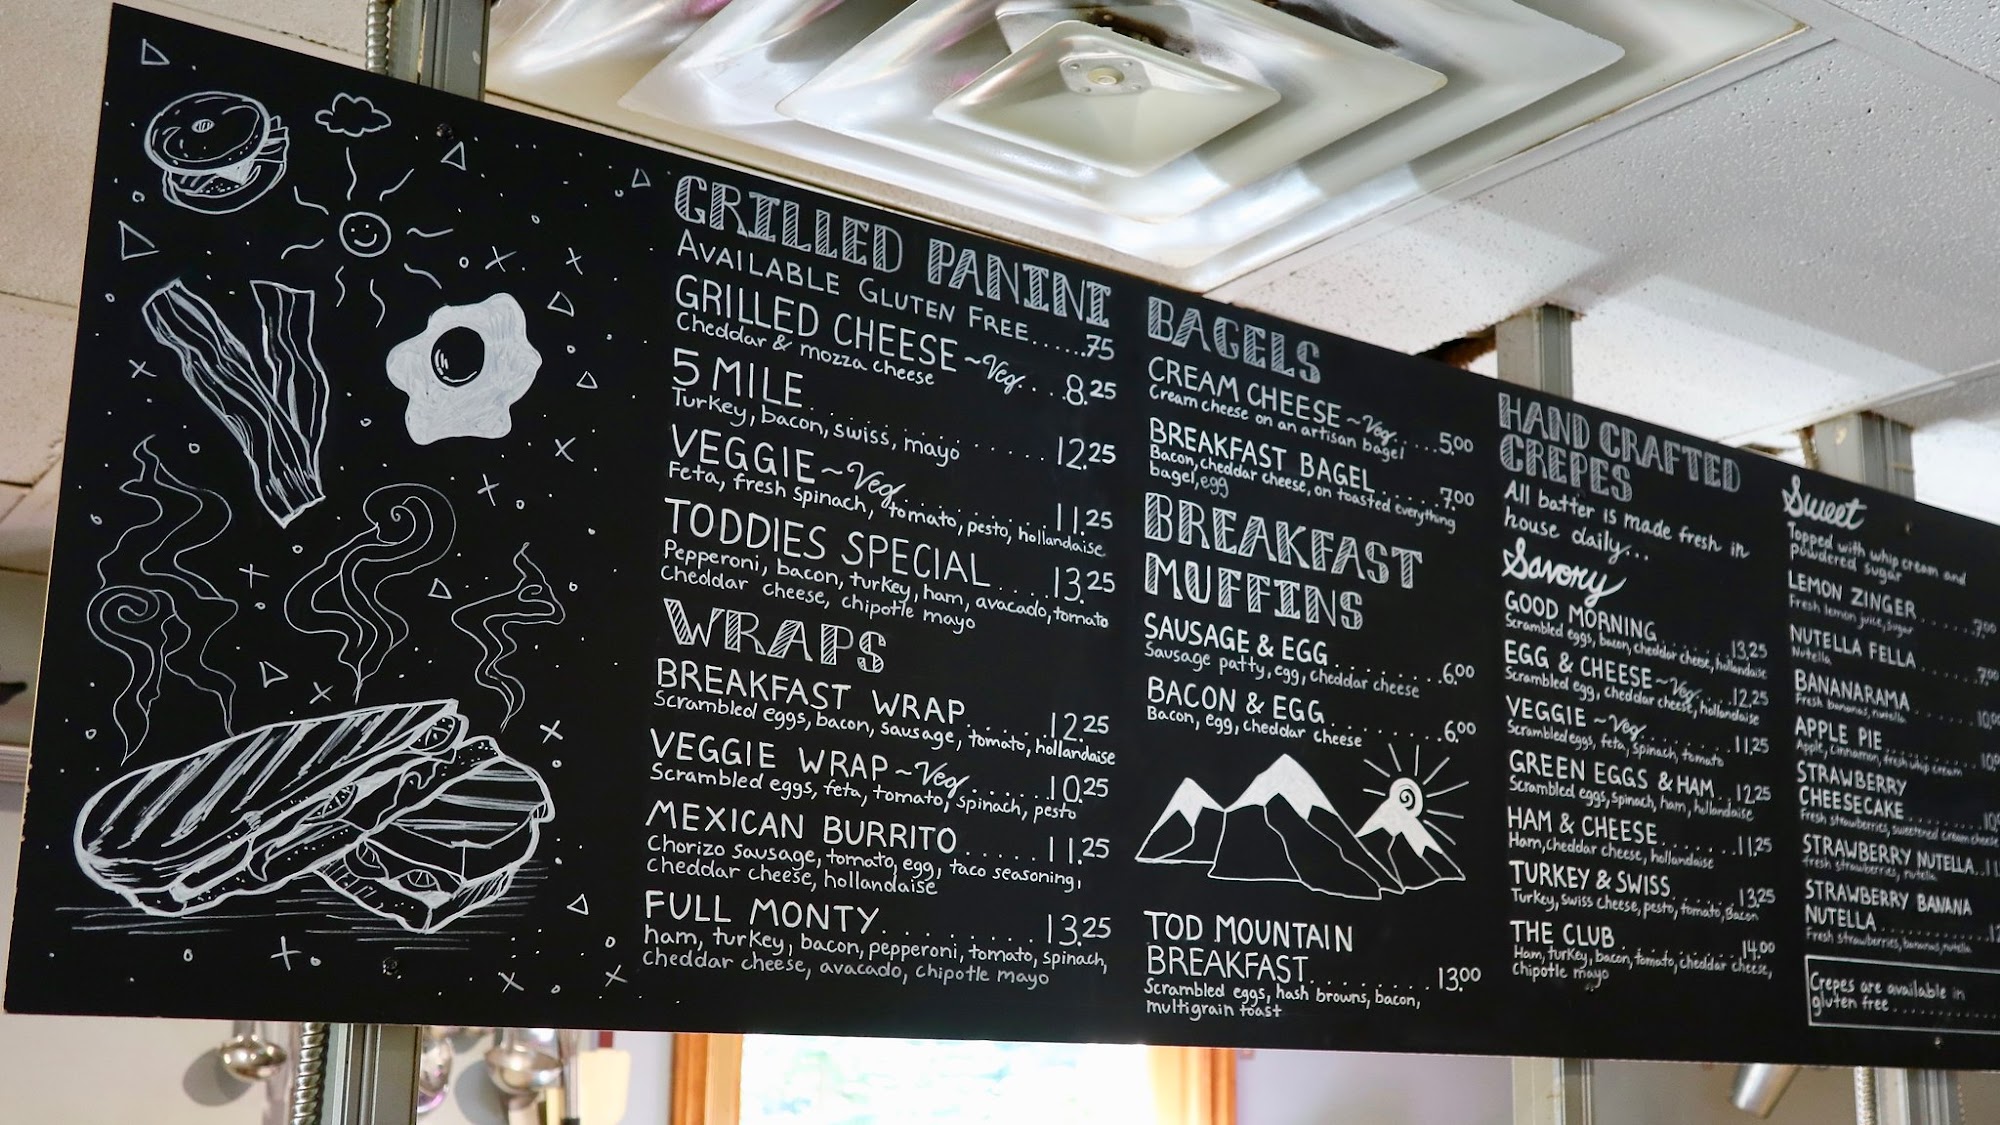 GRILLED PANINI
AVAILABLE GLUTEN FREE......75
GRILLED CHEESE ~Veg...8.25
Cheddar & mozza cheese
5 MILE..................12.25
Turkey, bacon, swiss, mayo
VEGGIE ~Veg.............11.25
Feta, fresh spinach, tomato, pesto, hollandaise
TODDIES SPECIAL....13.25
Pepperoni, bacon, turkey, ham, avacado, tomato
Cheddar cheese, chipotle mayo
WRAPS
BREAKFAST WRAP......12.25
Scrambled eggs, bacon, sausage, tomato, hollandaise
VEGGIE WRAP ~Veg.......10.25
Scrambled eggs, feta, tomato, spinach, pesto
MEXICAN BURRITO.....11.25
Chorizo sausage, tomato, egg, taco seasoning,
cheddar cheese, hollandaise
FULL MONTY..........13.25
ham, turkey, bacon, pepperoni, tomato, spinach,
cheddar cheese, avacado, chipotle mayo
BAGELS
CREAM CHEESE ~Veg....5.00
Cream cheese on an artisan bagel
BREAKFAST BAGEL......7.00
Bacon, cheddar cheese, on toasted everything
bagel, egg
BREAKFAST
MUFFINS
SAUSAGE & EGG.........6.00
Sausage patty, egg, cheddar cheese
BACON & EGG..........6.00
Bacon, egg, cheddar cheese
TOD MOUNTAIN
BREAKFAST..........13.00
Scrambled eggs, hash browns, bacon,
multigrain toast
HAND CRAFTED
CREPES
All batter is made fresh in
house daily...
Savory
GOOD MORNING.......13.25
Scrambled eggs, bacon, cheddar cheese, hollandaise
EGG & CHEESE ~Veg...12.25
Scrambled egg, cheddar cheese, hollandaise
VEGGIE ~Veg.........11.25
Scrambled eggs, feta, spinach, tomato
GREEN EGGS & HAM..12.25
Scrambled eggs, spinach, ham, hollandaise
HAM & CHEESE........11.25
Ham, cheddar cheese, hollandaise
TURKEY & SWISS......13.25
Turkey, swiss cheese, pesto, tomato, Bacon
THE CLUB............14.00
Ham, turkey, bacon, tomato, cheddar cheese,
chipotle mayo
Sweet
Topped with whip cream and
powdered sugar
LEMON ZINGER.......7.00
Fresh lemon juice, sugar
NUTELLA FELLA......7.00
Nutella
BANANARAMA
Fresh bananas, nutella
APPLE PIE
Apple, cinnamon, fresh whip cream
STRAWBERRY
CHEESECAKE
Fresh strawberries, sweetened cream cheese
STRAWBERRY NUTELLA
fresh strawberries, nutella
STRAWBERRY BANANA
NUTELLA
Fresh strawberries, bananas, nutella
Crepes are available in
gluten free